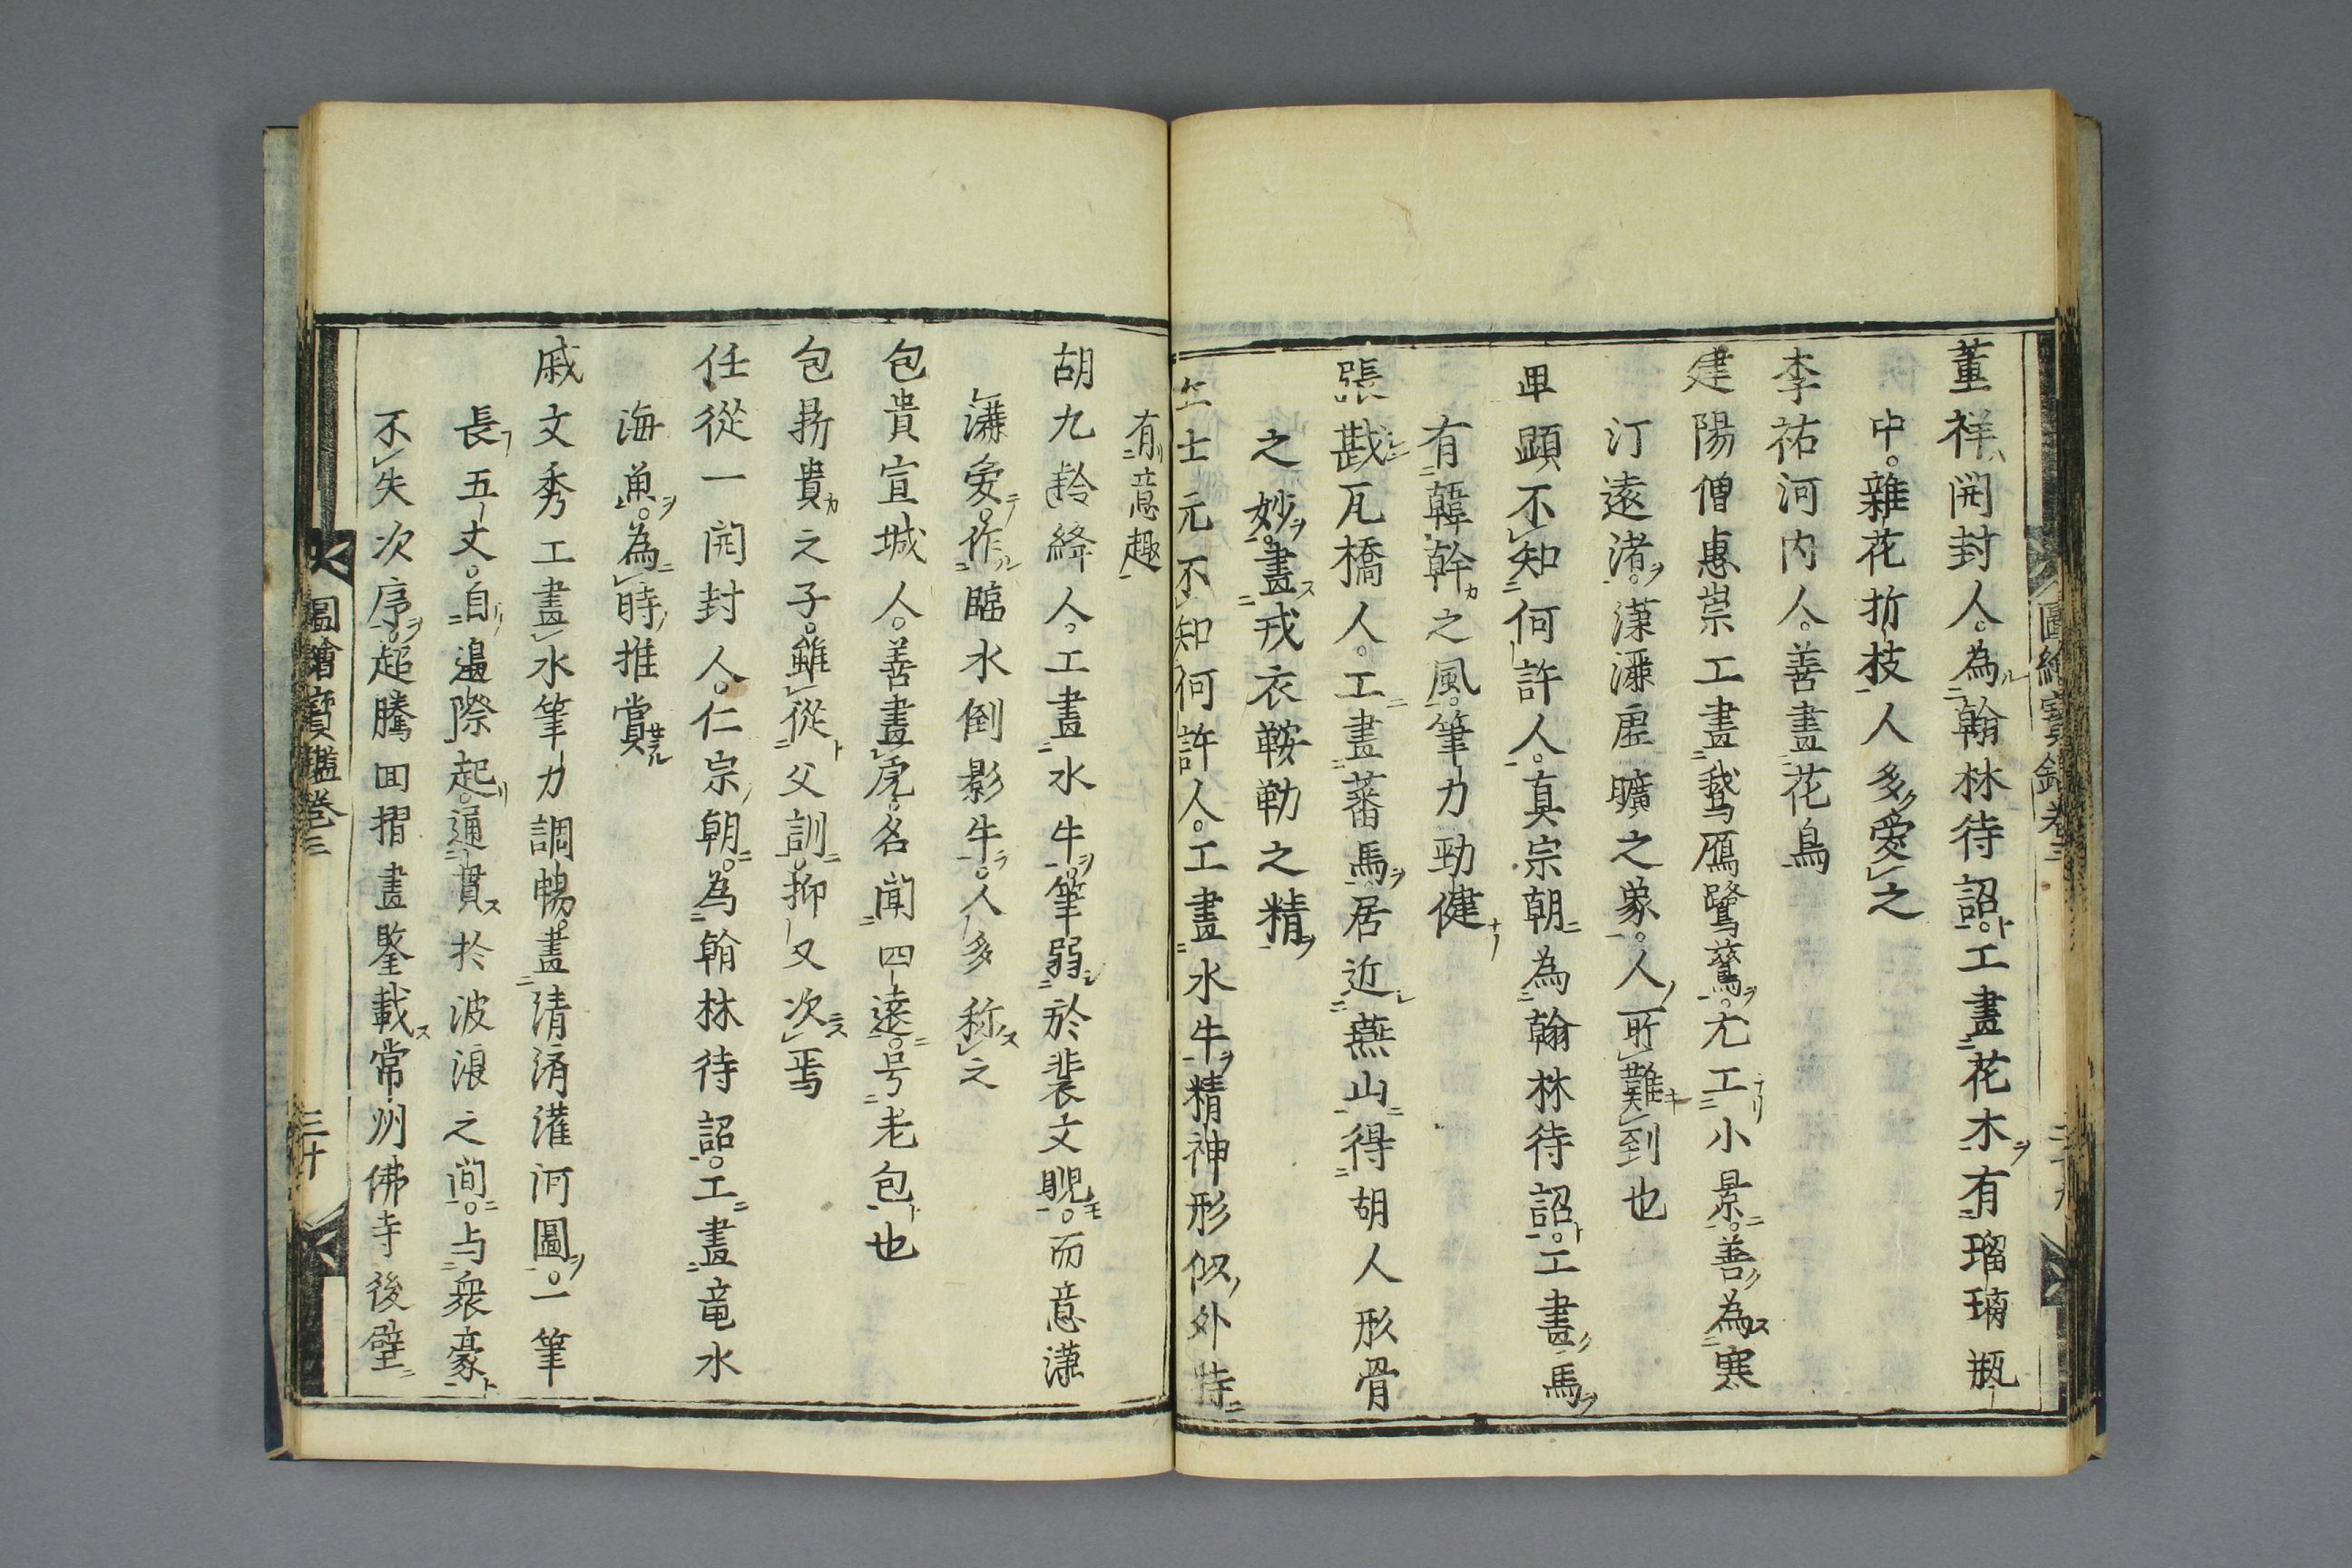 董祥開封人。為翰林待詔。工畫花木。有瑠璃瓶
中。雜花折枝人多愛之
李祐河内人。善畫花鳥
建陽僧惠崇工畫鵝鴈鷺鷥。尤工小景。善為寒
汀遠渚。瀟洒虚曠之象。人所難到也
毌顕不知何許人。真宗朝為翰林待詔。工畫馬
有韓幹之風。筆力勁健
張戡瓦橋人。工畫蕃馬。居近燕山得胡人形骨
之妙。畫戎衣鞍勒之精
丘士元不知何許人。工畫水牛精神形似外特
有意趣
胡九齡絳人。工畫水牛。筆弱於裴文睍。而意瀟
灑愛。作臨水倒影牛。人多称之
包貴宣城人。善畫虎名聞四遠。号老包也
包鼎貴之子。雖従父訓。抑又次焉
任從一開封人。仁宗朝。為翰林待詔。工畫竜水
海魚。為時推賞
戚文秀工畫水筆力調暢。畫清済灌河圖。一筆
長五丈。自邉際起。通貫於波浪之間。与衆豪
不失次序。超騰回摺畫鑒載常州佛寺後壁
圖繪寳鑑卷三
三十